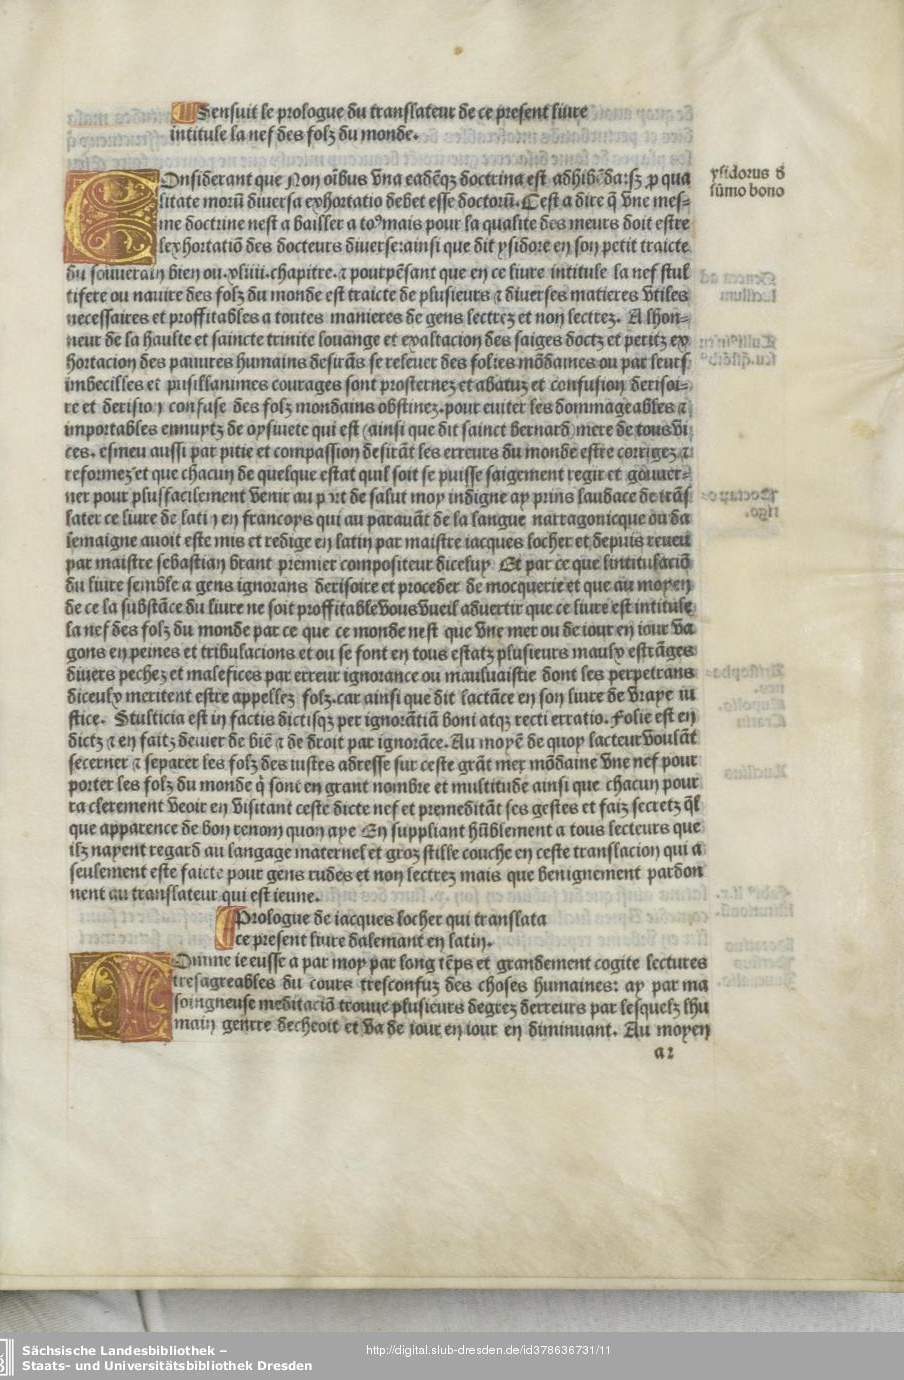 Sensuit le prologue du translateur de ce present liure
intitule la nef des folz du monde.
ysidorus d̄
sūmo bono
Onsiderant que Non oībus vna eadēqʒ doctrina est adhibēda:sʒ ꝓ qua
litate morū diuersa exhortatio debet esse doctorū. Cest a dire q̄ vne mes-
me doctrine nest a bailler a toꝰ mais pour la qualite des meurs doit estre
lexhortatiō des docteurs diuerse:ainsi que dit ysidore en son petit traicte
du souuerain bien ou.xliiii.chapitre.⁊ pourpēsant que en ce liure intitule la nef stul
tifere ou nauire des folz du monde est traicte de plusieurs ⁊ diuerses matieres vtiles
necessaires et proffitables a toutes manieres de gens lectrez et non lectrez. A lhon-
neur de la haulte et saincte trinite louange et exaltacion des saiges doctz et peritz ex
hortacion des pauures humains desirās se releuer des folies mōdaines ou par leurs
imbecilles et pusillanimes courages sont prosternez et abatuz et confusion derisoi-
re et derision confuse des folz mondains obstinez.pour euiter les dommageables ⁊
importables ennuytz de oysiuete qui est (ainsi que dit sainct bernard) mere de tous vi
ces. esmeu aussi par pitie et compassion desirāt les erreurs du monde estre corrigez ⁊
reformez et que chacun de quelque estat quil soit se puisse saigement regir et gouuer-
ner pour plus facilement venir au port de salut moy indigne ay prins laudace de trās
later ce liure de latin en francoys qui au parauāt de la langue narragonicque ou da
lemaigne auoit este mis et redige en latin par maistre iacques locher et depuis reueu
par maistre sebastian brant premier compositeur diceluy Et par ce que lintitulaciō
du liure semble a gens ignorans derisoire et proceder de mocquerie et que au moyen
de ce la substāce du liure ne soit proffitable vous vueil aduertir que ce liure est intitule
la nef des folz du monde par ce que ce monde nest que vne mer ou de iour en iour va
gons en peines et tribulacions et ou se font en tous estatz plusieurs maulx estrāges
diuers pechez et malefices par erreur ignorance ou mauluaistie dont les perpetrans
diceulx meritent estre appellez folz.car ainsi que dit lactāce en son liure de vraye iu
stice. Stulticia est in factis dictisqʒ per ignorātiā boni atqʒ recti erratio. Folie est en
dictz ⁊ en faitz deuier de biē ⁊ de droit par ignorāce. Au moyē de quoy lacteur voulāt
secerner ⁊ separer les folz des iustes adresse sur ceste grāt mer mōdaine vne nef pour
porter les folz du monde q̄ sont en grant nombre et multitude ainsi que chacun pour
ra clerement veoir en visitant ceste dicte nef et premeditāt ses gestes et faiz secretz q̄l
que apparence de bon renom quon aye En suppliant hūblement a tous lecteurs que
ilz nayent regard au langage maternel et groz stille couche en ceste translacion qui a
seulement este faicte pour gens rudes et non lectrez mais que benignement pardon
nent au translateur qui est ieune.
Prologue de iacques locher qui translata
ce present liure dalemant en latin.
Omme ie eusse a par moy par long tēps et grandement cogite lectures
tresagreables du cours tresconfuz des choses humaines: ay par ma
soingneuse meditaciō trouue plusieurs degrez derreurs par lesquelz lhu
main genrre dechoit et va de iour en iour en diminuant. Au moyen
a2
Sächsische Landesbibliothek –
Staats- und Universitätsbibliothek Dresden
http://digital.slub-dresden.de/id378636731/11